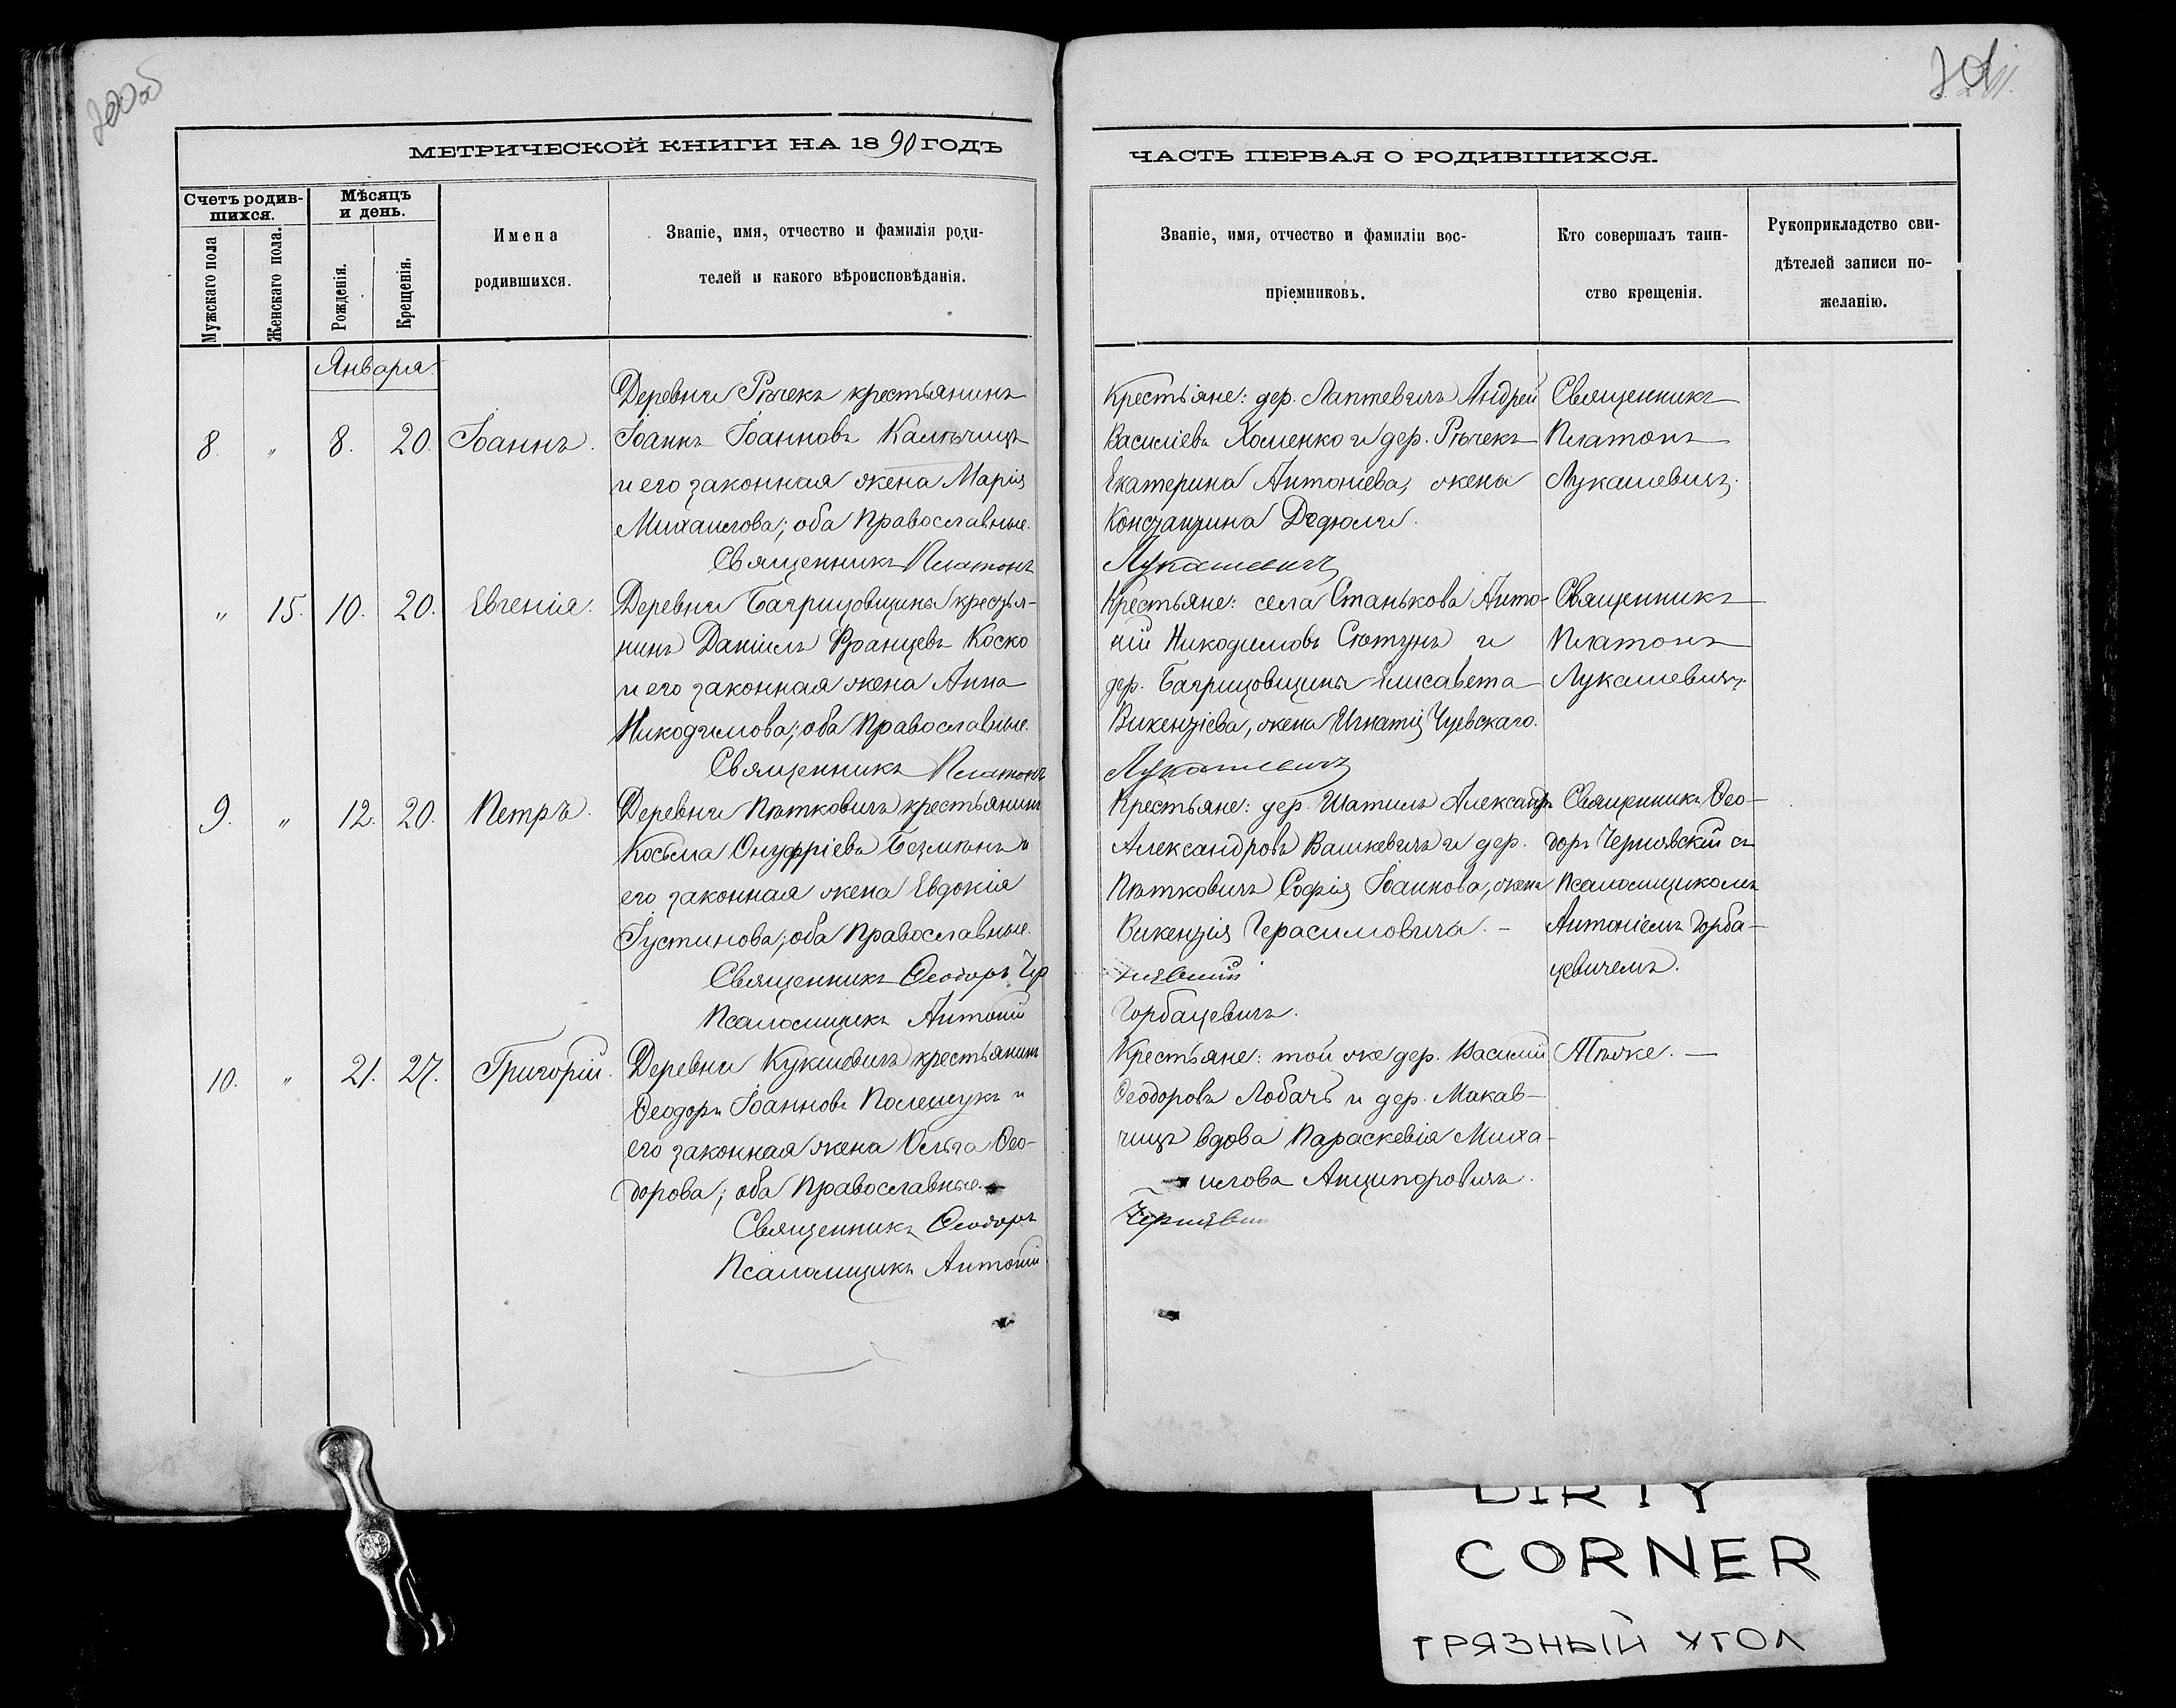 200об
201
МЕТРИЧЕСКОЙ КНИГИ НА 1890 ГОДЪ
ЧАСТЬ ПЕРВАЯ О РОДИВШИХСЯ.
Счетъ родив-
шихся.
Мужскаго пола
Женскаго пола.
Мѣсяцъ
и день.
Рожденія.
Крещенія.
Имена
родившихся.
Званіе, имя, отчество и фамилія роди-
телей и какого вѣроисповѣданія.
Званіе, имя, отчество и фамиліи вос-
пріемниковъ.
Кто совершалъ таин-
ство крещенія.
Рукоприкладство сви-
дѣтелей записи по-
желанію.
Января
8. „ 8. 20. Іоаннъ.
Деревни Рѣчекъ крестьянинъ
Іоаннъ Іоанновъ
и его законная жена Марія
Михаилова; оба Православные.
Священникъ Платонъ
Крестьяне: дер. Лаптевичъ Андрей
Василіевъ Хоменко и дер. Рѣчекъ
Екатерина Антоніева, жена
Константина Дедюли.
Лукашевичъ
Священникъ
Платонъ
Лукашевичъ.
„ 15. 10. 20. Евгенія.
Деревни Багрицовщины крестья-
нинъ Даніилъ Францевъ Коско
и его законная жена Анна
Никодимова; оба Православные.
Священникъ Платонъ
Крестьяне: села Станькова Анто-
ній Никодимовъ и
дер. Багрицовщины Елисавета
Викентіева, жена Игнатія Чуевскаго.
Лукашевичъ
Священникъ
Платонъ
Лукашевичъ.
9. „ 12. 20. Петръ.
Деревни Пѣтковичъ крестьянинъ
Косьма Онуфріевъ и
его законная жена Евдокія
Іустинова; оба Православные.
Священникъ Ѳеодоръ Чер
Псаломщикъ Антоній
Крестьяне: дер. Шатилъ Александръ
Александровъ Вашкевичъ и дер.
Пѣтковичъ Софія Іоаннова, жена
Викентія Герасимовича. -
нявскій
Горбацевичъ.
Священникъ Ѳео-
доръ Чернявскій съ
Псаломщикомъ
Антоніемъ Горба-
цевичемъ.
10. „ 21. 27. Григорій.
Деревни Кукшевичъ крестьянинъ
Ѳеодоръ Іоанновъ Полещукъ и
его законная жена Ольга Ѳео-
дорова; оба Православные.
Священникъ Ѳеодоръ
Псаломщикъ Антоній
Крестьяне: той же дер. Василій
Ѳеодоровъ Лобачъ и дер. Макав-
чицъ вдова Параскевія Миха-
илова Анципоровичъ.
Чернявскій
Тѣже. —
DIRTY
CORNER
ГРЯЗНЫЙ УГОЛ